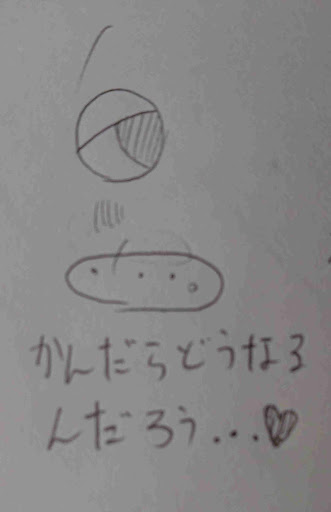 かんだらどうなる
んだろう...♥